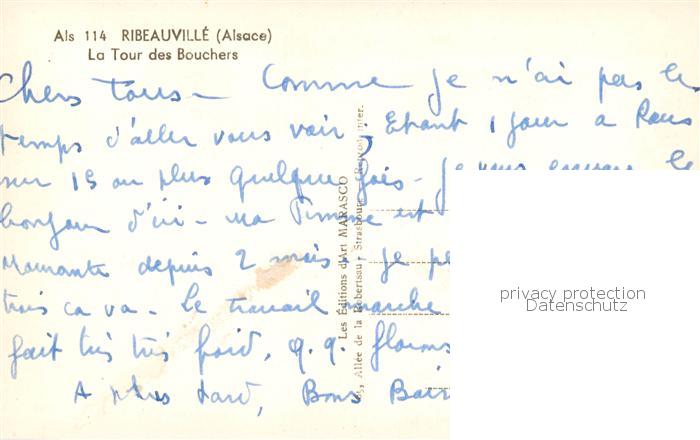 Als 114 RIBEAUVILLÉ (Alsace)
La Tour des Bouchers
Chers Tous - Comme je n'ai pas le
temps d'aller vous voir. Etant 1 jour a Paris
sur 15 ou plus quelque fois - Je vous envoie le
bonjour d'ici - Ma Femme est
depuis 2 mois. Je
trois ca va - Le travail marche
fait très très froid, q.q. flocons
A plus tard, Bons
Les Éditions d'Art MARASCO
Allée de la Robertsau - Strasbourg - Reprod. inter.
privacy protection
Datenschutz